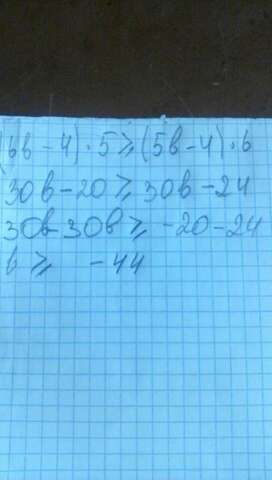 (6в-4)·5⩾(5в-4)·6
30в-20⩾30в-24
30в-30в⩾-20-24
в⩾ -44